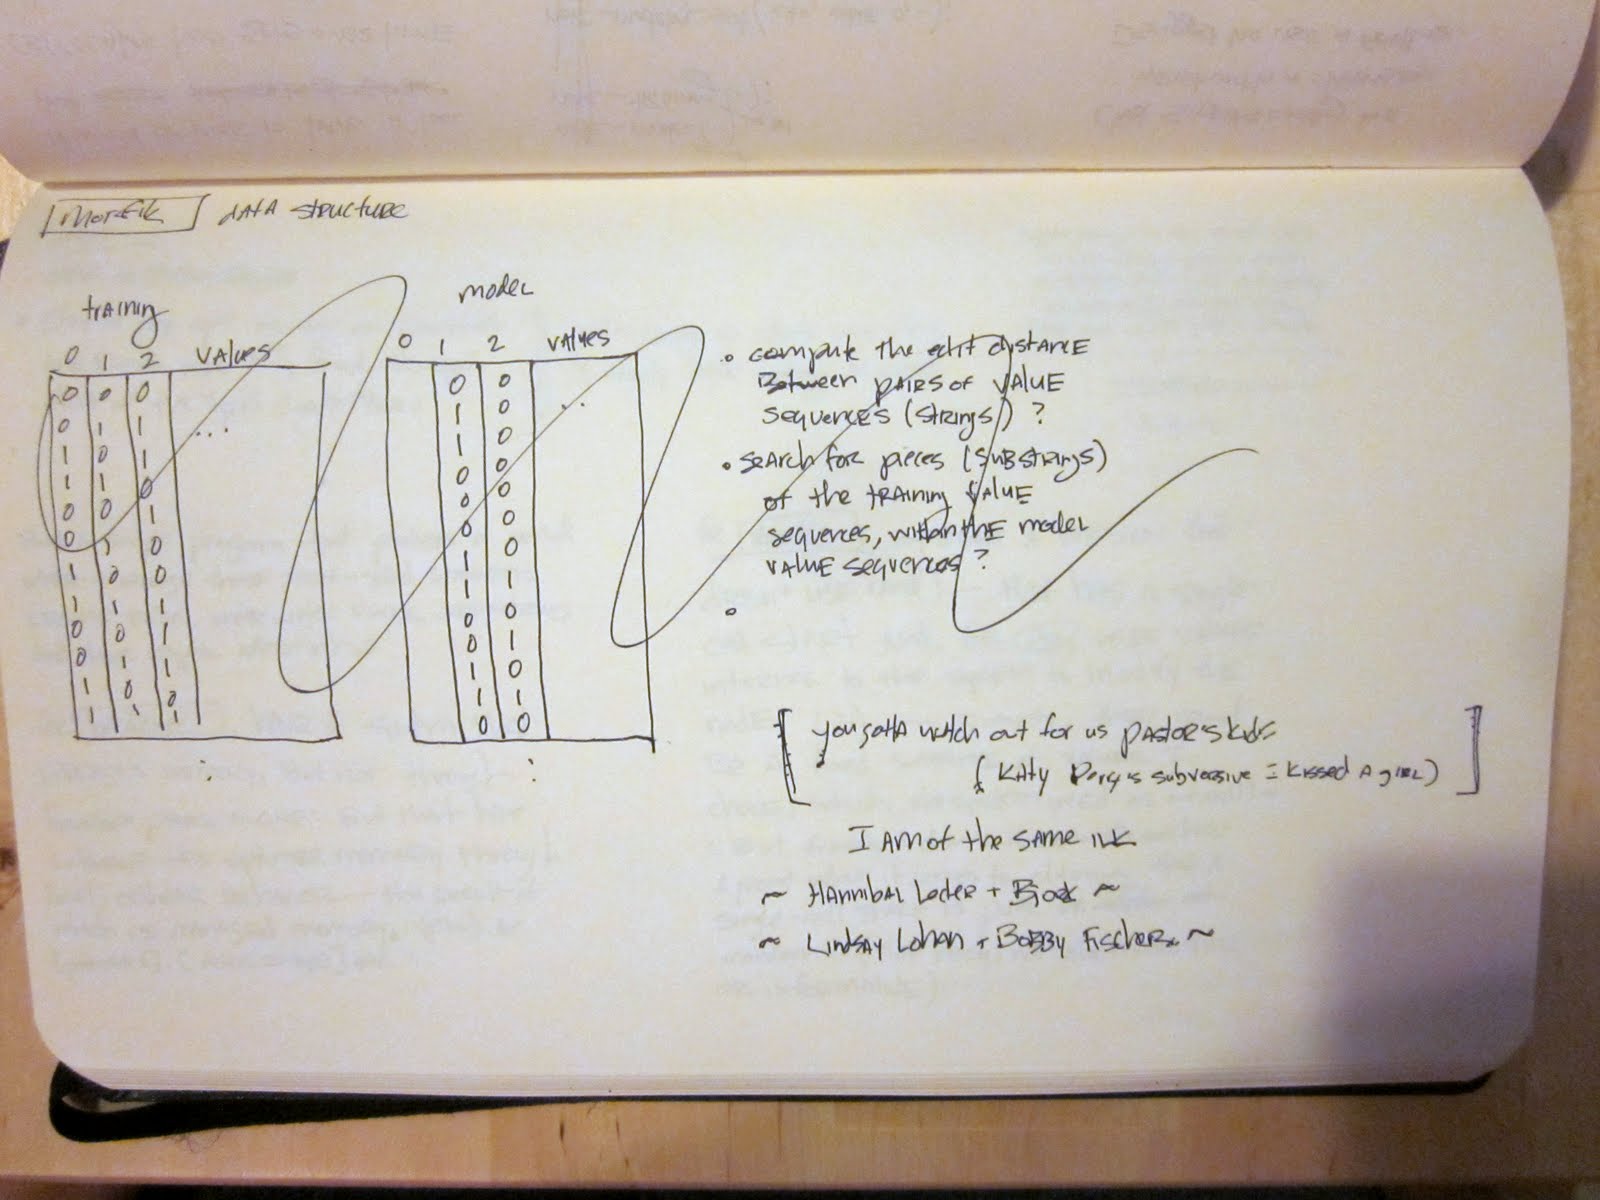 Morfik data structure
training
0 1 2 values
0 0 0
0 1 1 ...
1 0 1
1 1 0
0 0 1
0 1 0
1 0 0
1 1 1
0 0 1
0 1 1
1 0 0
1 1 1
:
model
0 1 2 values
0 0
1 0 ..
1 0
0 0
0 0
0 0
1 0
1 1
0 0
0 1
1 0
1 1
0 0
:
• compute the edit distance
between pairs of value
sequences (strings) ?
• search for pieces (substrings)
of the training value
sequences, within the model
value sequences ?
•
[ you gotta watch out for us pastor's kids
( Katy Perry's subversive I Kissed a girl) ]
I am of the same ilk
~ Hannibal Lecter + Bjork ~
~ Lindsay Lohan + Bobby Fischer ~